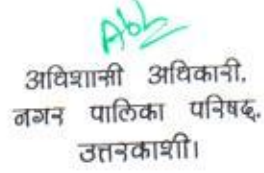 अधिशासी अधिकारी,
नगर पालिका परिषद,
उत्तरकाशी।